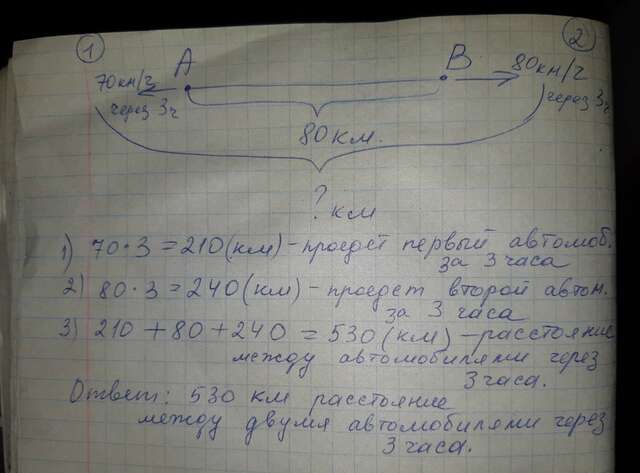 1 2
A B
70км/ч 80км/ч
через 3ч через 3ч
80 км.
? км
1) 70·3=210(км)-проедет первый автомоб.
за 3 часа
2) 80·3=240(км)-проедет второй автом.
за 3 часа
3) 210+80+240=530(км)-расстояние
между автомобилями через
3 часа.
Ответ: 530 км расстояние
между двумя автомобилями через
3 часа.